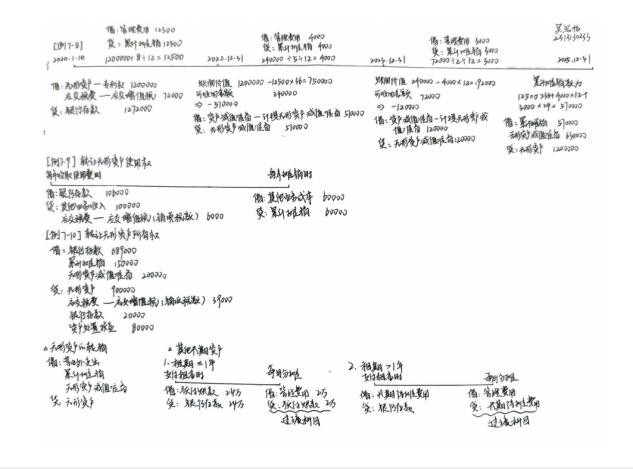 借:管理费用 12500
贷:累计摊销 12500
借:管理费用 4000
贷:累计摊销 4000
借:管理费用 3000
贷:累计摊销 3000
[例7-8]
2020.1.10 1200000÷8÷12=12500 2022.12.31 240000÷5÷12=4000 2023.12.31 72000÷2÷12=3000 2025.12.31
借:无形资产—专利权 1200000
应交税费—应交增值税) 72000
贷:银行存款 1272000
账面价值 1200000-12500×36=750000
可收回金额 240000
⇒ -510000
借:资产减值损失—计提无形资产减值准备 510000
贷:无形资产减值准备 510000
账面价值 240000-4000×12=192000
可收回金额 72000
⇒ -120000
借:资产减值损失—计提无形资产减值准备 120000
贷:无形资产减值准备 120000
累计摊销数为
12500×36+4000×12+
3000×24=570000
借:累计摊销 570000
无形资产减值准备 630000
贷:无形资产 1200000
[例7-9] 转让无形资产使用权
每年收取使用费时 每年摊销时
借:银行存款 106000
贷:其他业务收入 100000
应交税费—应交增值税(销项税额) 6000
借:其他业务成本 60000
贷:累计摊销 60000
[例7-10] 转让无形资产所有权
借:银行存款 689000
累计摊销 150000
无形资产减值准备 200000
贷:无形资产 900000
应交税费—应交增值税(销项税额) 39000
银行存款 20000
资产处置损益 80000
无形资产的转销
借:营业外支出
累计摊销
无形资产减值准备
贷:无形资产
其他长期资产
1.租期≤1年
支付租金时 每月分摊
借:预付账款 24万
贷:银行存款 24万
借:管理费用 2万
贷:预付账款 2万
过渡科目
2.租期>1年
支付租金时 每月分摊
借:长期待摊费用
贷:银行存款
借:管理费用
贷:长期待摊费用
过渡科目